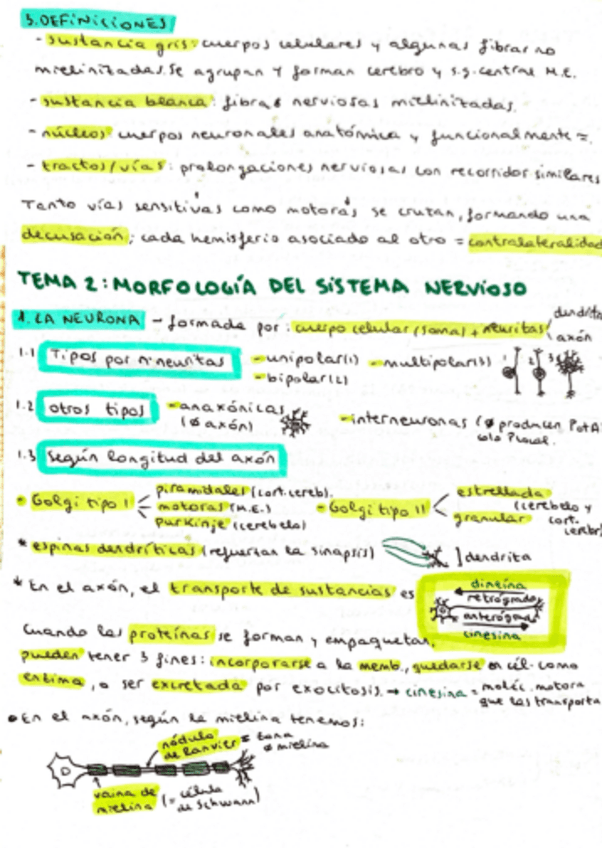 3. DEFINICIONES
- sustancia gris: cuerpos celulares y algunas fibras no
mielinizadas. Se agrupan y forman cerebro y s.g. central M.E.
- sustancia blanca: fibras nerviosas mielinizadas.
- núcleos: cuerpos neuronales anatómica y funcionalmente =.
- tractos/vías: prolongaciones nerviosas con recorridos similares
Tanto vías sensitivas como motoras se cruzan, formando una
decusación; cada hemisferio asociado al otro = contralateralidad
TEMA 2: MORFOLOGÍA DEL SISTEMA NERVIOSO
1. LA NEURONA - formada por: cuerpo celular (soma) + neuritas < dendrita
axón
1.1 Tipos por nº neuritas - unipolar(1) - multipolar(3) 1 2 3
- bipolar(2)
1.2 otros tipos - anaxónicas - interneuronas (Ø producen PotA
(Ø axón) solo
1.3 según longitud del axón
- Golgi tipo I < piramidales (cort. cereb). - Golgi tipo II < estrellada
motoras (M.E.) (cerebelo y
purkinje (cerebelo) granular cort. cerebr)
* espinas dendríticas (refuerzan la sinapsis) ] dendrita
* En el axón, el transporte de sustancias es dineína
retrógrado
anterógrado
cinesina
Cuando las proteínas se forman y empaquetan,
pueden tener 3 fines: incorporarse a la memb., quedarse en cél. como
enzima, o ser excretada por exocitosis. → cinesina = moléc. motora
que las transporta
• En el axón, según la mielina tenemos:
nódulo de Ranvier = zona Ø mielina
vaina de mielina (= célula de Schwann)